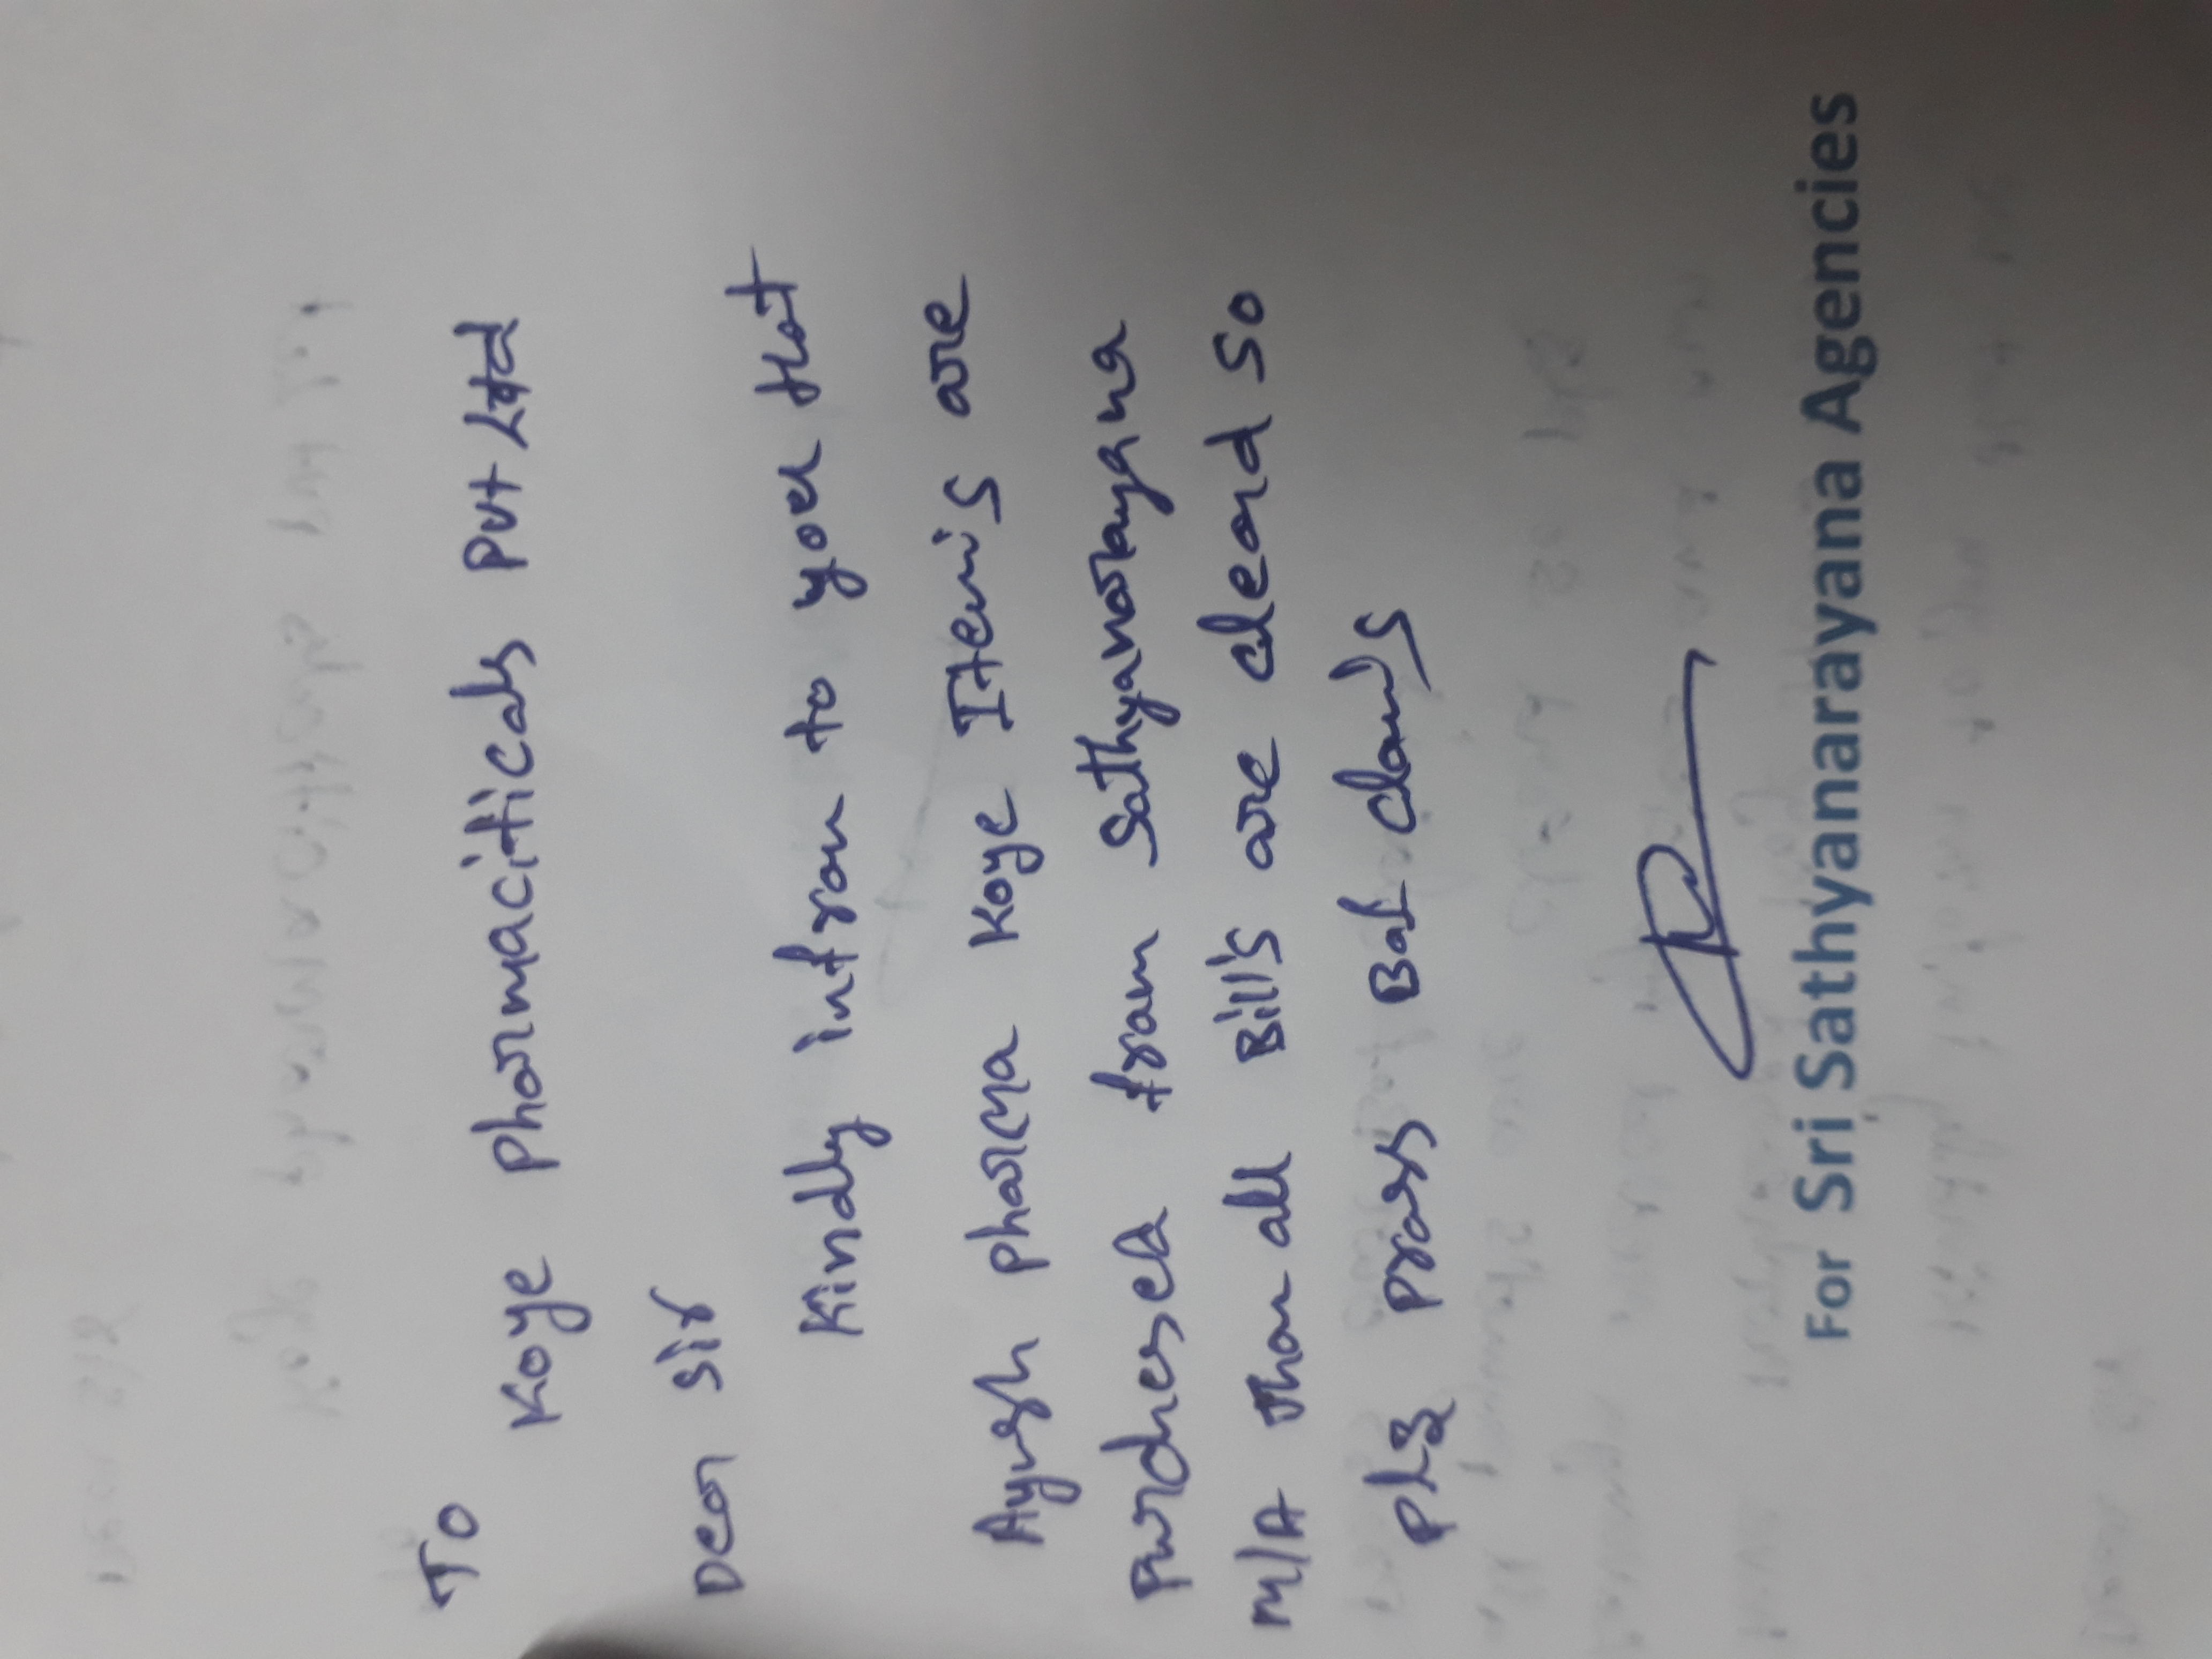 To
Koye pharmaciticals Pvt Ltd
Dear Sir
Kindly infrom to you that
Ayush pharma Koye Items are
purchesed from Sathyanarayana
M/A Than all Bills are cleard so
plz prass Bat claims
For Sri Sathyanarayana Agencies